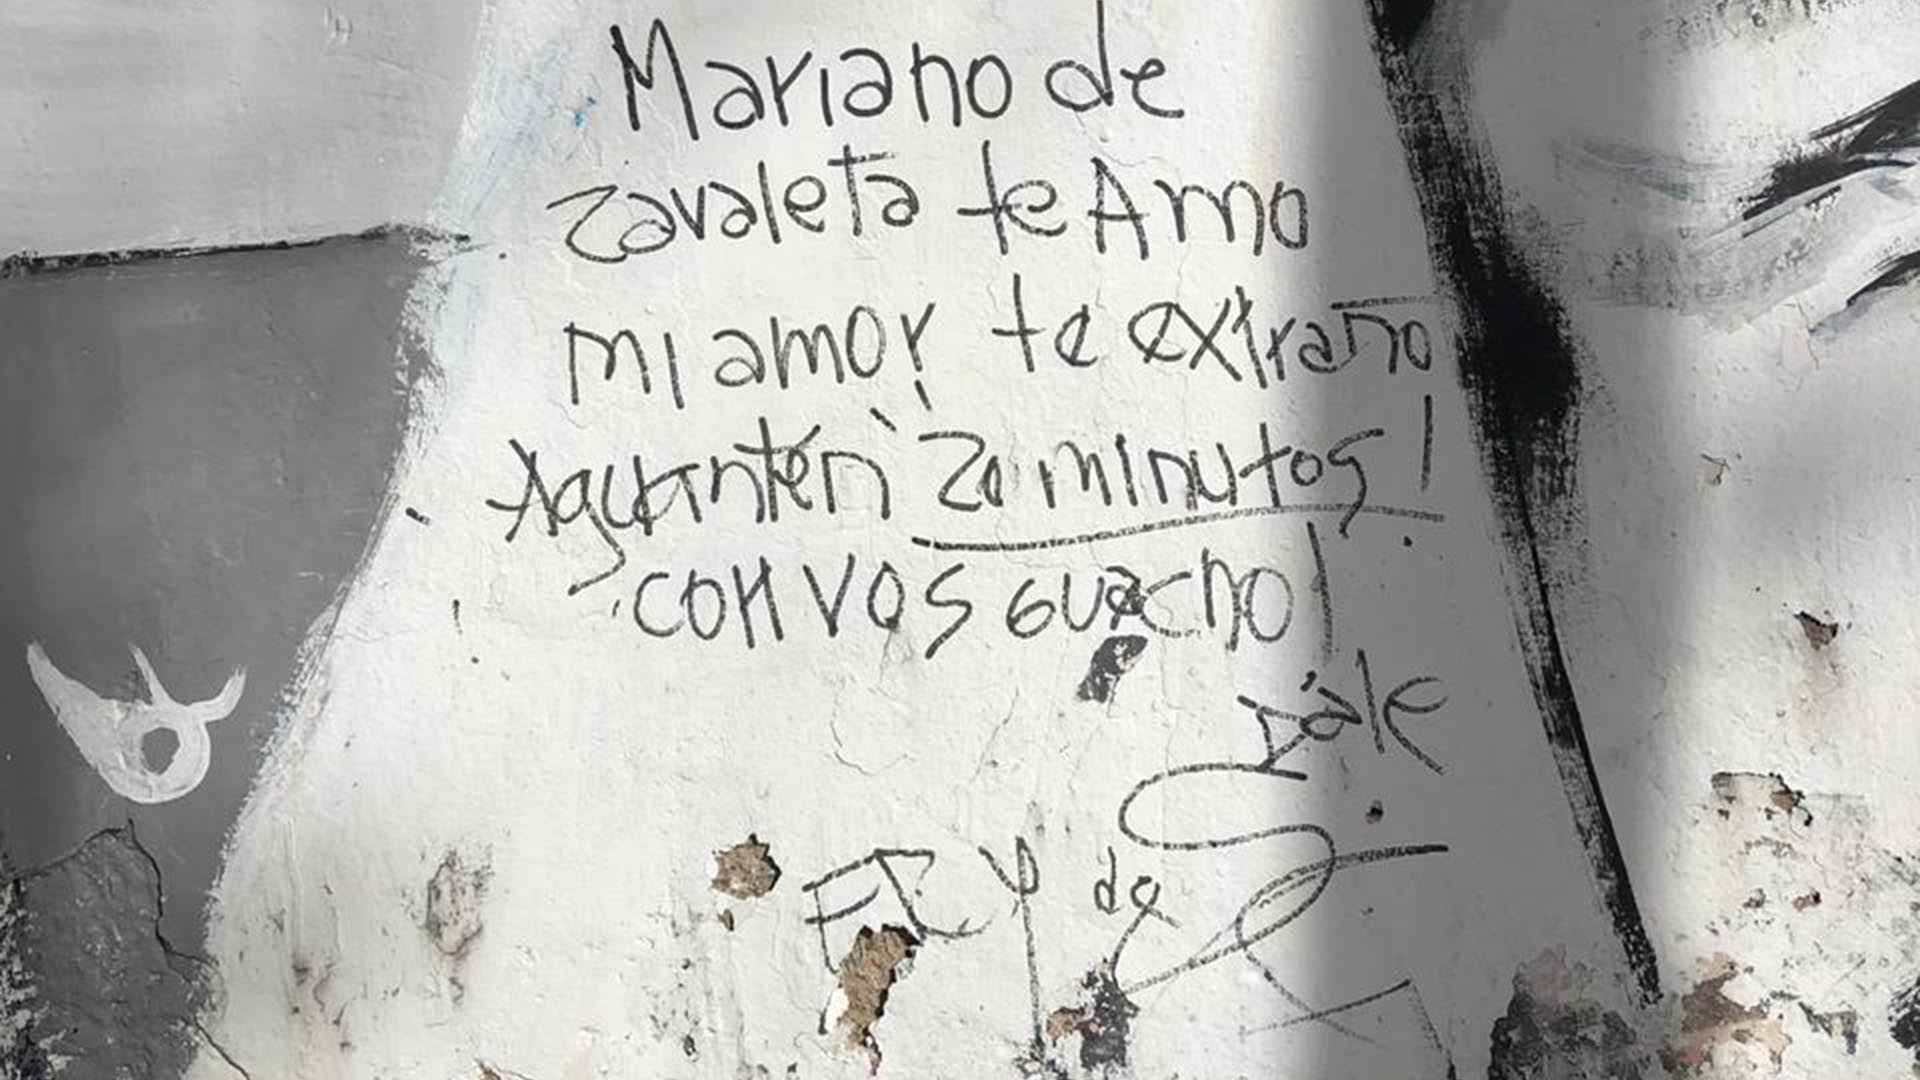 Mariano de
zavaleta te Amo
mi amor te extraño
Aguanten 20 minutos!
con vos guacho!
Dale
y de